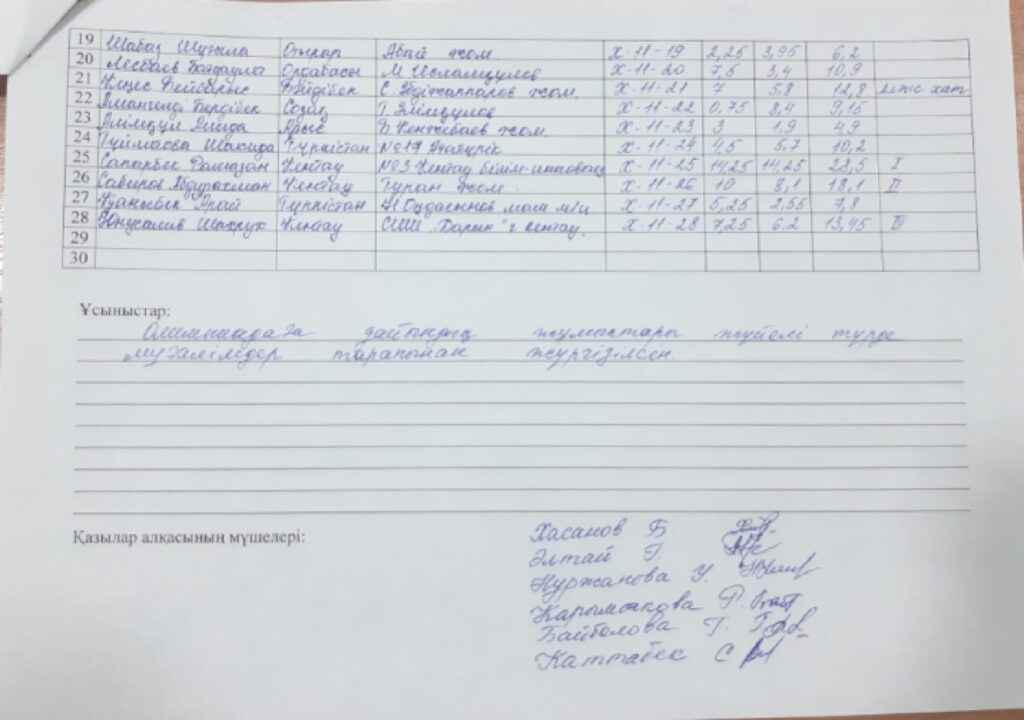 19 Шабаз Шуғыла Отырар Абай жом Х-11-19 2,25 3,95 6,2
20 Лесбаев Бағдаулет Ордабасы М Исламқулов Х-11-20 7,5 3,4 10,9
21 Бейбарыс Бәйдібек С. Әбдіжаппаров жом. Х-11-21 7 5,8 12,8 хат
22 Амангелді Бердібек Созақ Т. Әлімқулов Х-11-22 0,75 8,4 9,15
23 Әлімқул Арыс жом. Х-11-23 3 1,9 4,9
24 Түркістан №17 Х-11-24 4,5 5,7 10,2
25 Сапарбек Рамазан Кентау №3 Кентау білім-инновац Х-11-25 14,25 14,25 28,5 I
26 Сабиров Абдурахман Кентау Тұран жом. Х-11-26 10 8,1 18,1 II
27 Қуанышбек Арай Түркістан Н Оңдасынов мам м/и Х-11-27 5,25 2,55 7,8
28 Юнусалив Шахрух Кентау СШИ "Дарын" г кентау. Х-11-28 7,25 6.2 13,45 III
29
30
Ұсыныстар:
Олимпиадаға дайындық жұмыстары жүйелі түрде
мұғалімдер тарапынан жүргізілсен.
Қазылар алқасының мүшелері:
Хасанов Б
Әлтай Г.
Нуржанова У.
Р.
Байболова Г.
Каттабек С